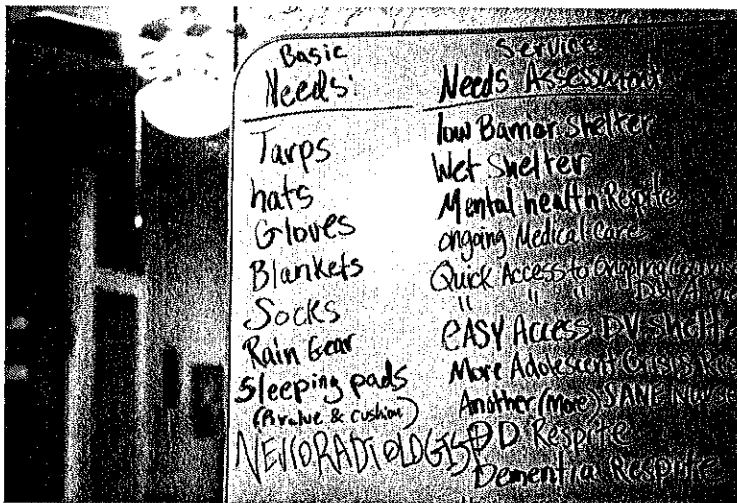 Basic
Needs:
Tarps
hats
Gloves
Blankets
Socks
Rain Gear
Sleeping pads
(R value & cushion)
NEUORADIOLOGIST
Service
Needs Assessment
low Barrier Shelter
Wet Shelter
Mental health Resprite
ongoing Medical Care
Quick Access to Ongoing
" " "
eASY Access DV Shelt
More Adolescent Crisis Res
Another (more) SANE Nurse
DD Resprite
Dementia Resprite